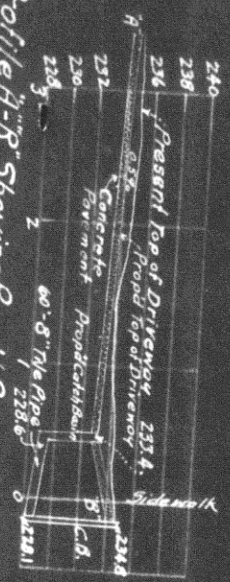 240
238
236
232
230
228
"A"
Present Top of Driveway
Propd Top of Driveway
0.5%
Concrete
Pavement
Propd Catch Basin
233.4
60'-8" Tile Pipe
228.6
Sidewalk
"B"
C.B.
234.8
228.1
3
2
1
0
Profile "A-B" Showing